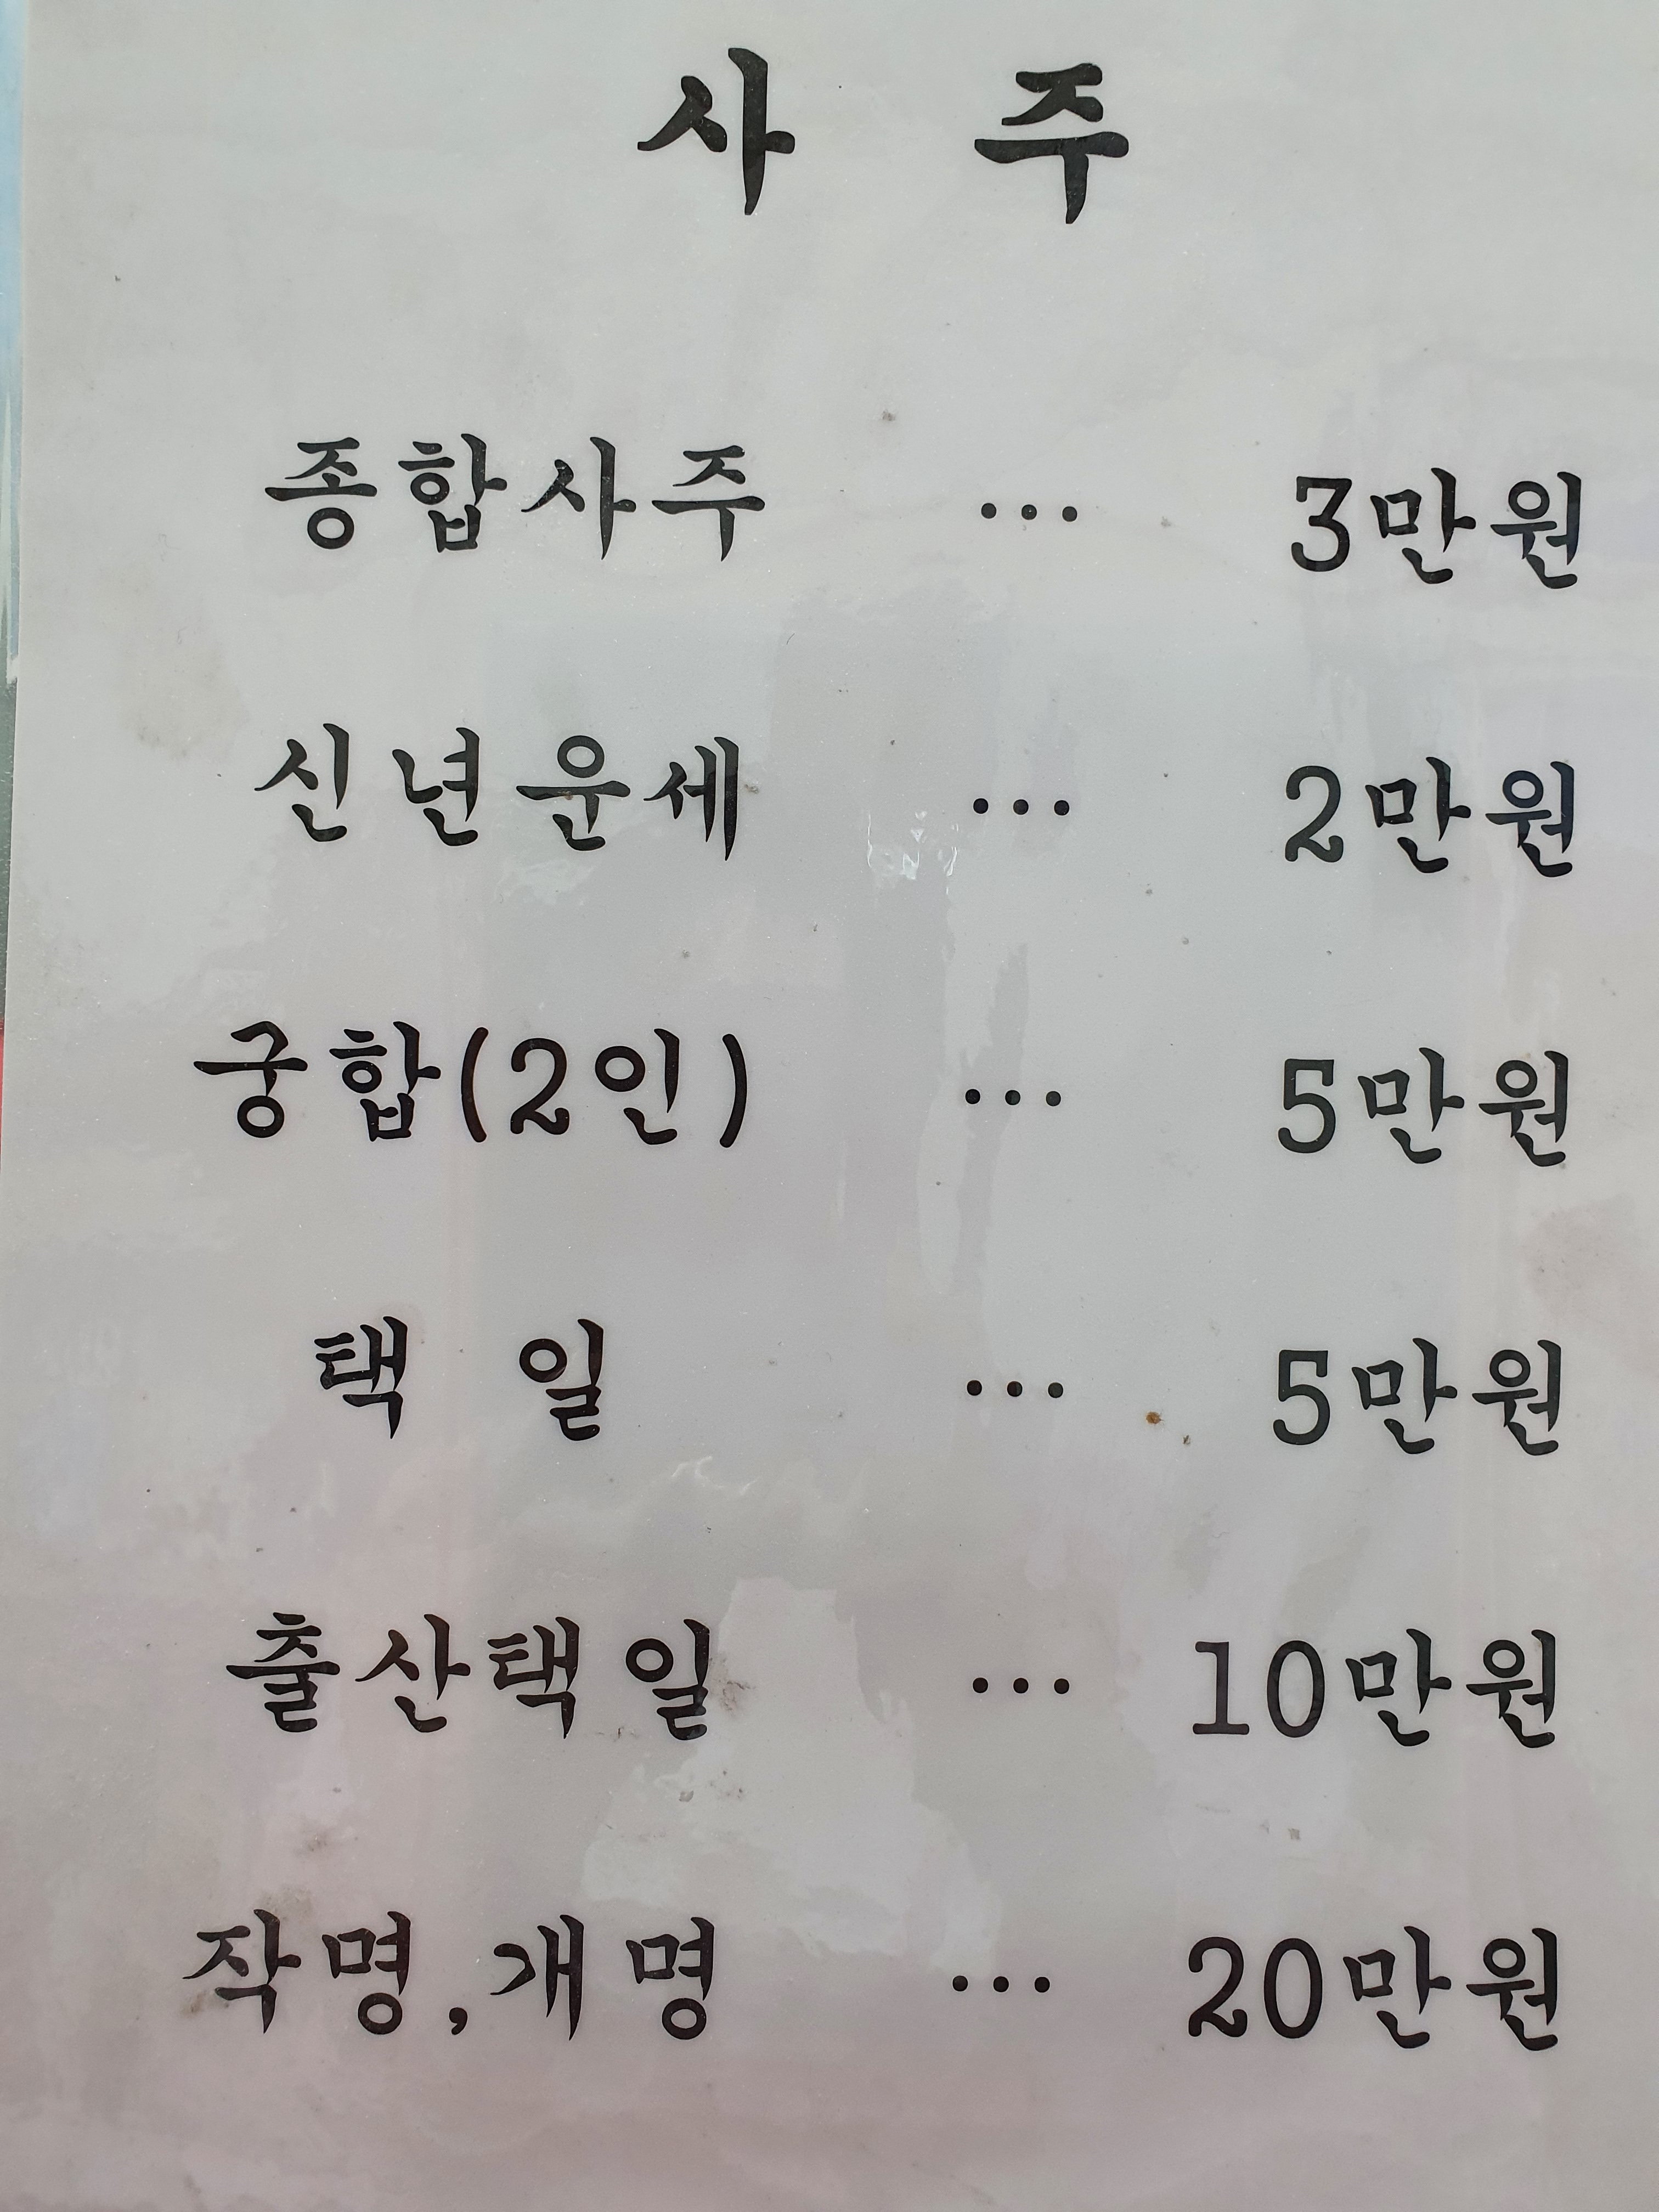 사 주
종합사주 ... 3만원
신년운세 ... 2만원
궁합(2인) ... 5만원
택 일 ... 5만원
출산택일 ... 10만원
작명,개명 ... 20만원